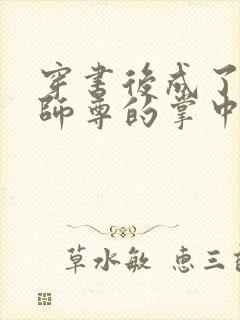 穿书後成了
师尊的掌中
草水敏 惠三